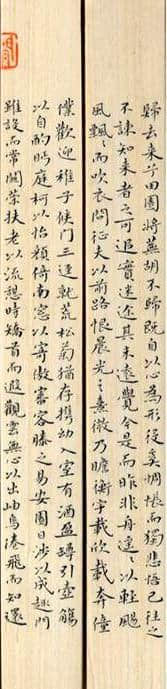 歸去来兮田園將蕪胡不歸既自以心為形役奚惆悵而獨悲悟已往之
不諫知来者之可追實迷途其未遠覺今是而昨非舟遙〻以輕颺
風飄〻而吹衣問征夫以前路恨晨光之熹微乃瞻衡宇載欣載奔僮
僕歡迎稚子候門三逕就荒松菊猶存携幼入室有酒盈罇引壺觴
以自酌眄庭柯以怡顏倚南窗以寄傲審容膝之易安園日涉以成趣門
雖設而常關策扶老以流憩時矯首而遐觀雲無心以出岫鳥倦飛而知還